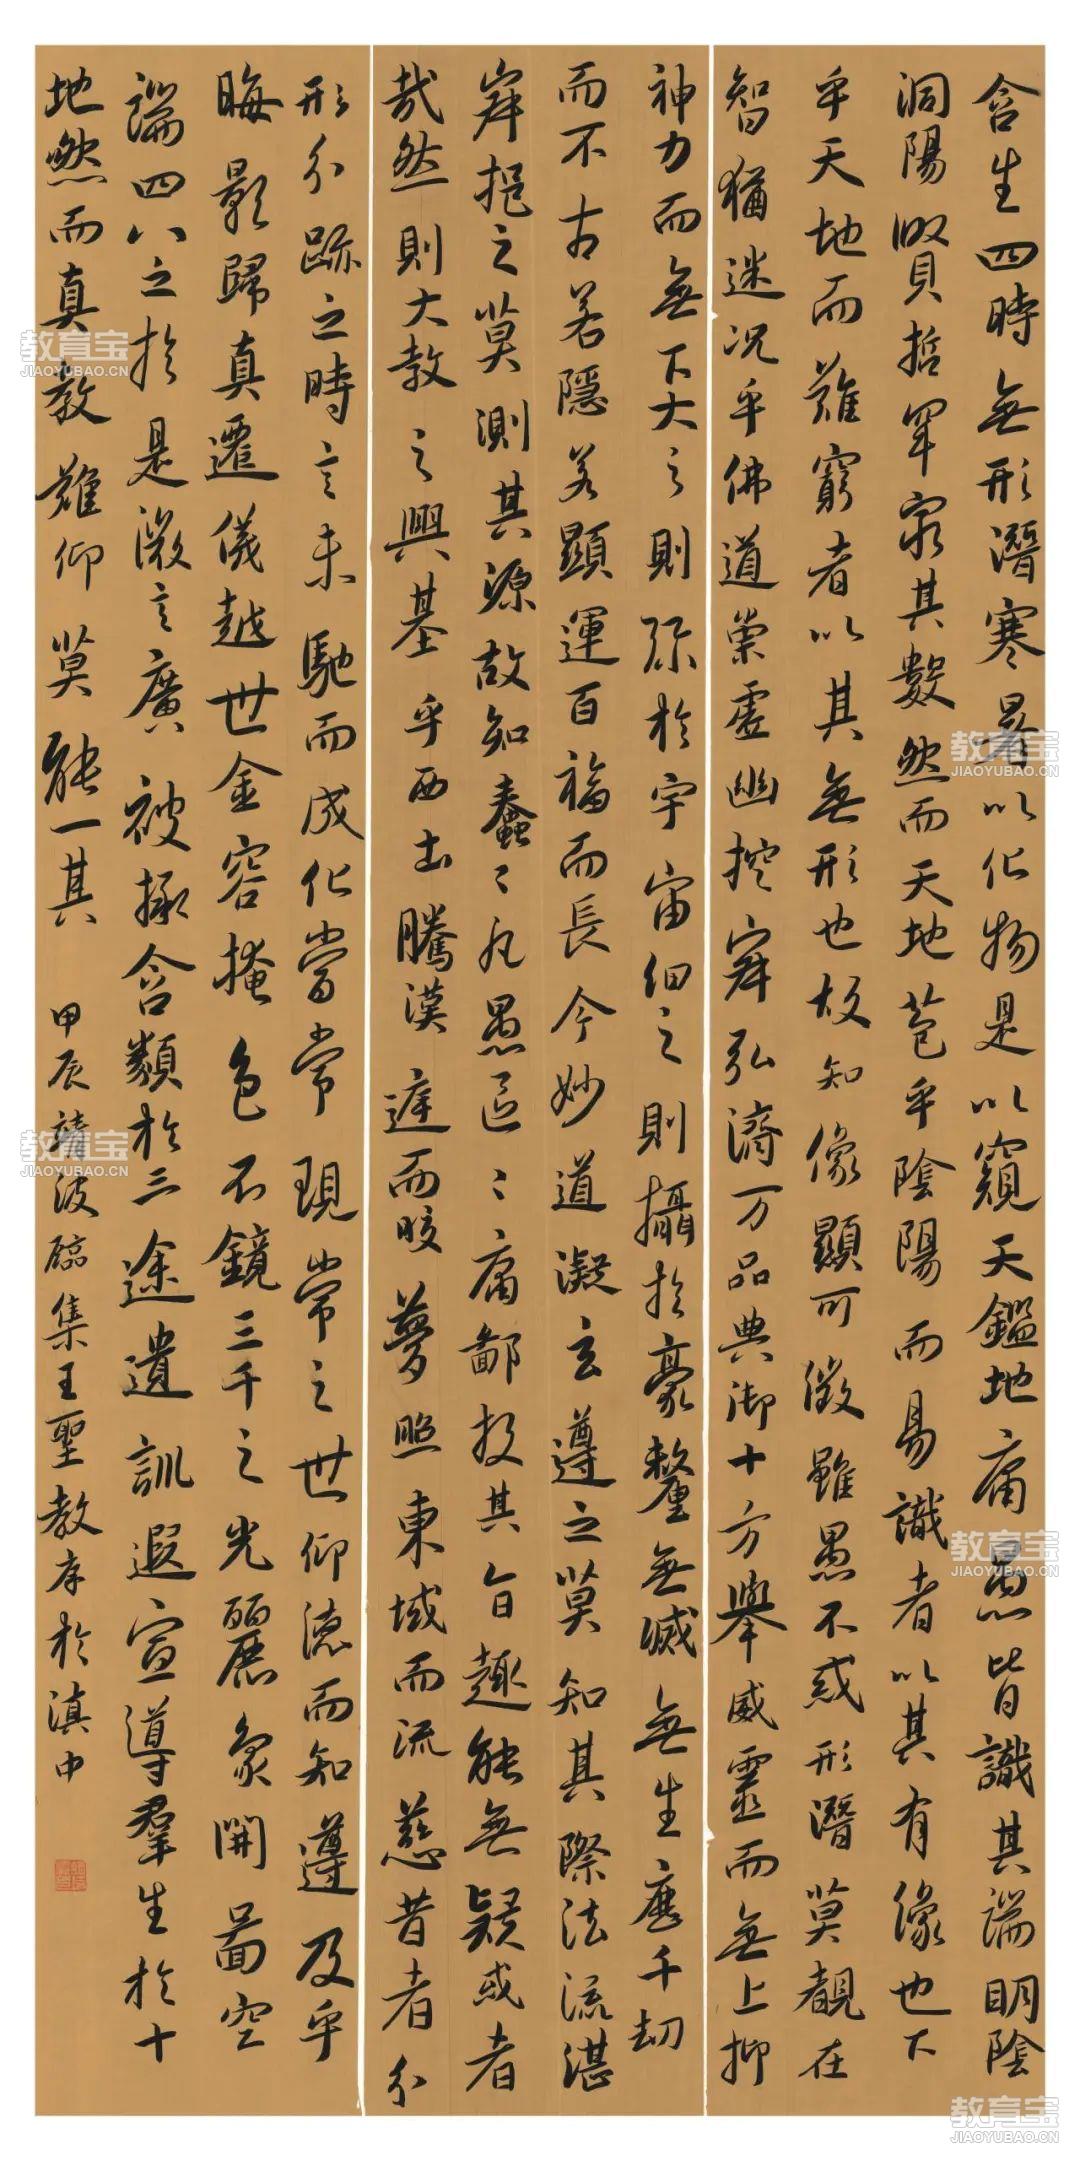 含生四時無形潛寒暑以化物是以窺天鑑地庸愚皆識其端明陰
洞陽賢哲罕窮其數然而天地苞乎陰陽而易識者以其有像也下
乎天地而難窮者以其無形也故知像顯可徵雖愚不惑形潛莫覩在
智猶迷況乎佛道崇虛幽控寂弘濟万品典御十方舉威靈而無上抑
神力而無下大之則弥於宇宙細之則攝於豪釐無滅無生歷千劫
而不古若隱若顯運百福而長今妙道凝玄遵之莫知其際法流湛
寂挹之莫測其源故知蠢〻凡愚區〻庸鄙投其旨趣能無疑或者
哉然則大教之興基乎西土騰漢庭而晈夢照東域而流慈昔者分
形分跡之時言未馳而成化當常現常之世仰德而知遵及乎
晦影歸真遷儀越世金容掩色不鏡三千之光麗象開圖空
端四八之於是微言廣被拯含類於三途遺訓遐宣導群生於十
地然而真教難仰莫能一其 甲辰靖波臨集王聖教序於滇中
教育宝
JIAOYUBAO.CN
教育宝
JIAOYUBAO.CN
教育宝
JIAOYUBAO.CN
教育宝
JIAOYUBAO.CN
教育宝
JIAOYUBAO.CN